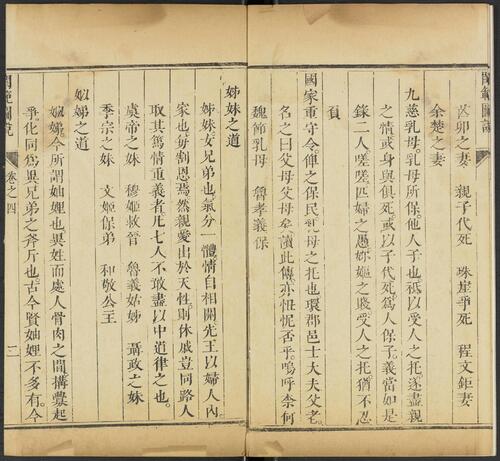 閨範圖說
芮卯之妻 親子代死 珠崖爭死 程文鉅妻
余楚之妻
九慈乳母。乳母所保他人子也。秪以受人之托。遂盡親
之情或身與俱死。或以子代死。爲人保子。義當如是
錄二人。嗟嗟。匹婦之愚。妳嫗之賤。受人之托猶不忍
負
國家重守令。俾之保民。乳母之托也。環郡邑士大夫父老。
名之曰父母父母矣。讀此傳亦忸怩否乎。嗚呼柰何
魏節乳母 魯孝義保
姊妹之道
姊妹女兄弟也。氣分一體情自相關先王以婦人內
家也。每割恩焉然親愛出於天性。則休戚豈同路人
取其篤情重義者。凡七人不敢盡以中道律之也。
虞帝之妹 穆姬救晉 魯義姑姊 聶政之妹
季宗之妹 文姬保弟 和敬公主
姒娣之道
姒娣。今所謂妯娌也。異姓而處人骨肉之間。搆釁起
爭。化同爲異。兄弟之斧斤也。古今賢妯娌不多有。今
閨範圖說 卷之四 二